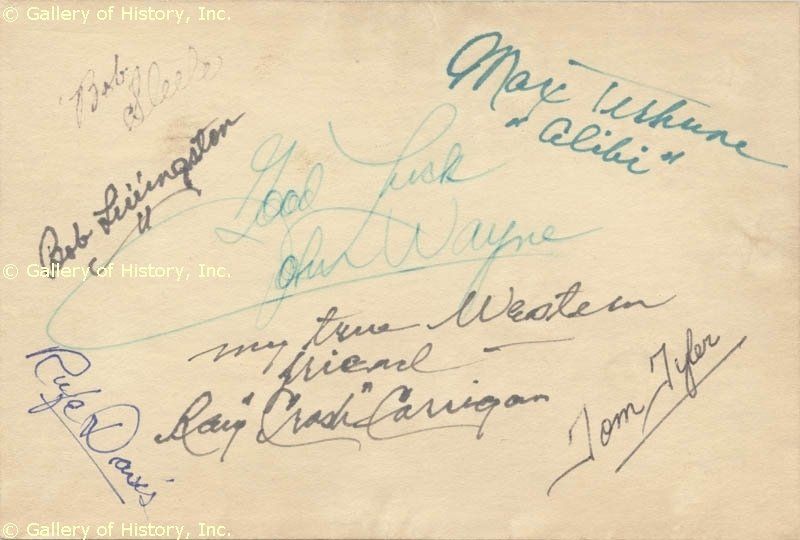 © Gallery of History, Inc.
Bob
Steele
Max Terhune
"Alibi"
Bob Livingston
Good Luck
John Wayne
© Gallery of History, Inc.
my true Western
friend —
Ray "Crash" Corrigan
Rufe Davis
Tom Tyler
© Gallery of History, Inc.